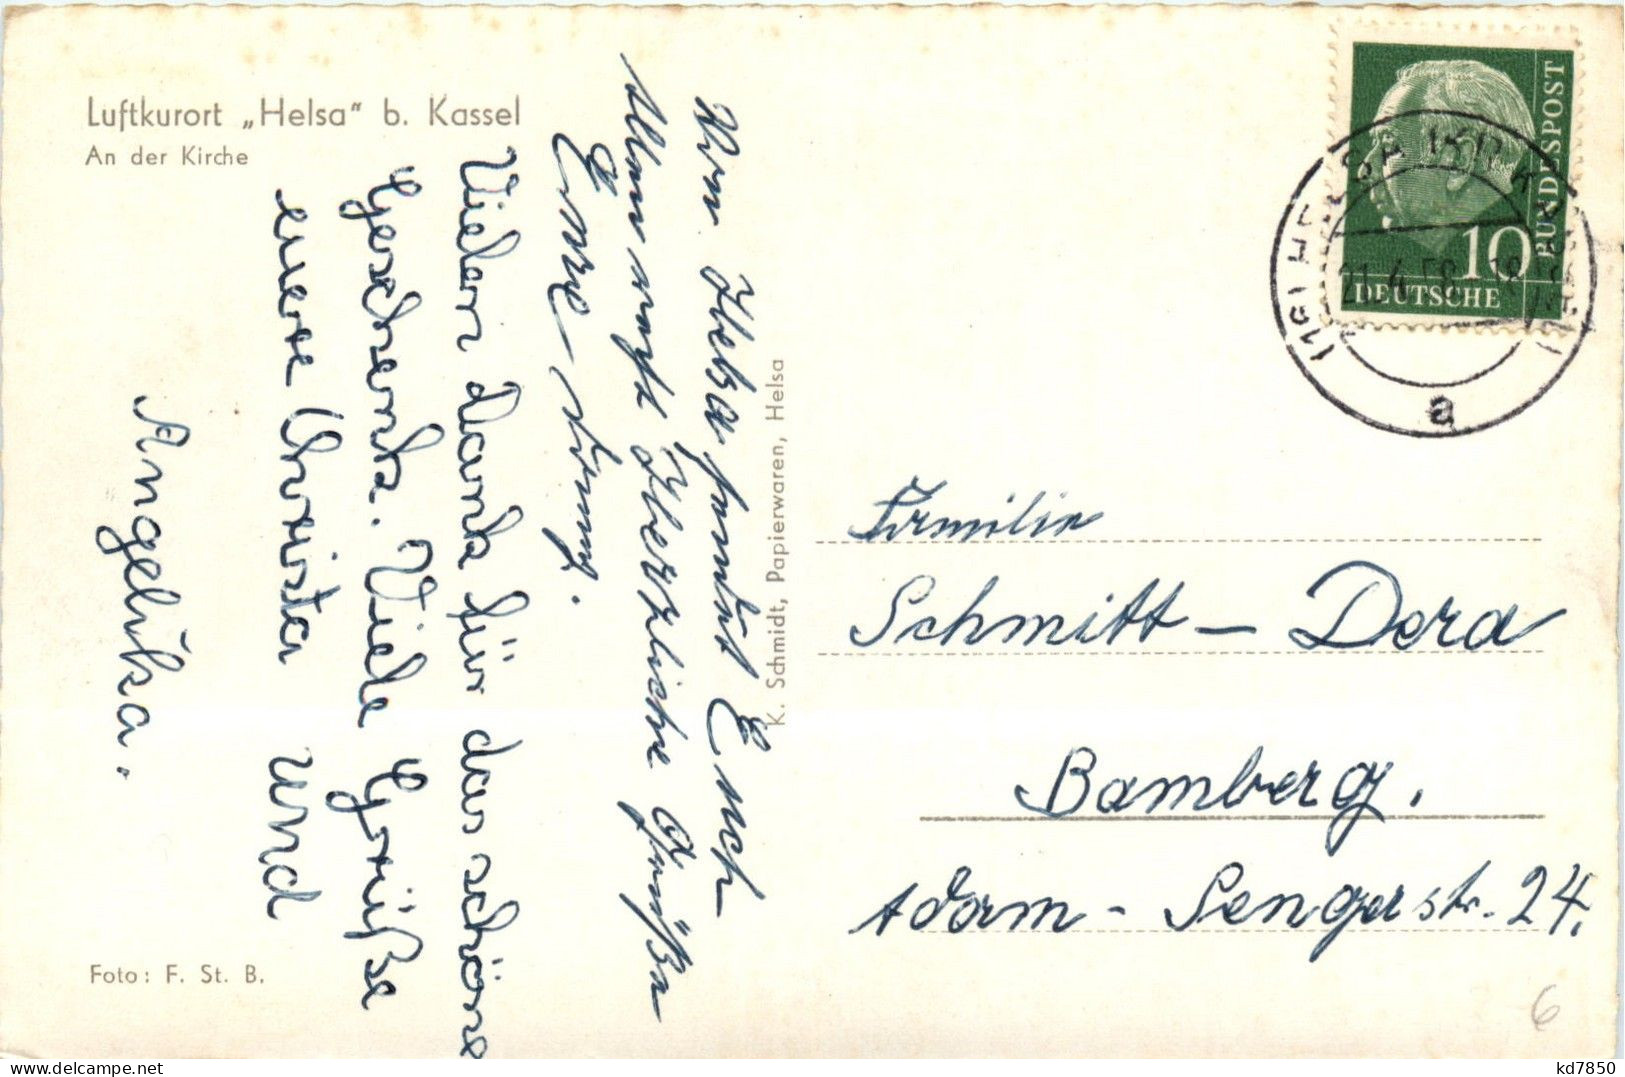 Luftkurort „Helsa" b. Kassel
An der Kirche
Von Helsa sendet Euch
Allen recht Herzliche Grüße
Eure
Vielen dank für das schöne
Geschenk. Viele Grüße
eure Christa und
Angelika.
K. Schmidt, Papierwaren, Helsa
Foto: F. St. B.
DEUTSCHE
BUNDESPOST
10
21.4.58
a
Familie
Schmitt - Dera
Bamberg.
Adam - Sengerstr. 24.
6
kd7850